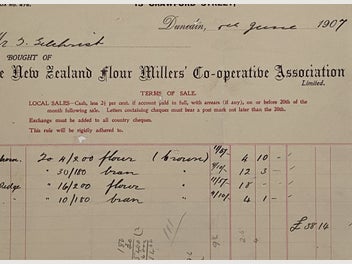 15 CRAWFORD STREET,
Dunedin, June 1907
Gilchrist
BOUGHT OF
e New Zealand Flour Millers' Co-operative Association
Limited.
TERMS OF SALE.
LOCAL SALES—Cash, less 2½ per cent. if account paid in full, with arrears (if any), on or before 20th of the
month following sale. Letters containing cheques must bear a post mark not later than the 20th.
Exchange must be added to all country cheques.
This rule will be rigidly adhered to.
To 4/200 flour (Crown) 11/5/- 4 10 -
" 30/180 bran " 12 3 -
Ridge " 16/200 flour " 11/5/- 18 -
" 10/180 bran " 4 1 -